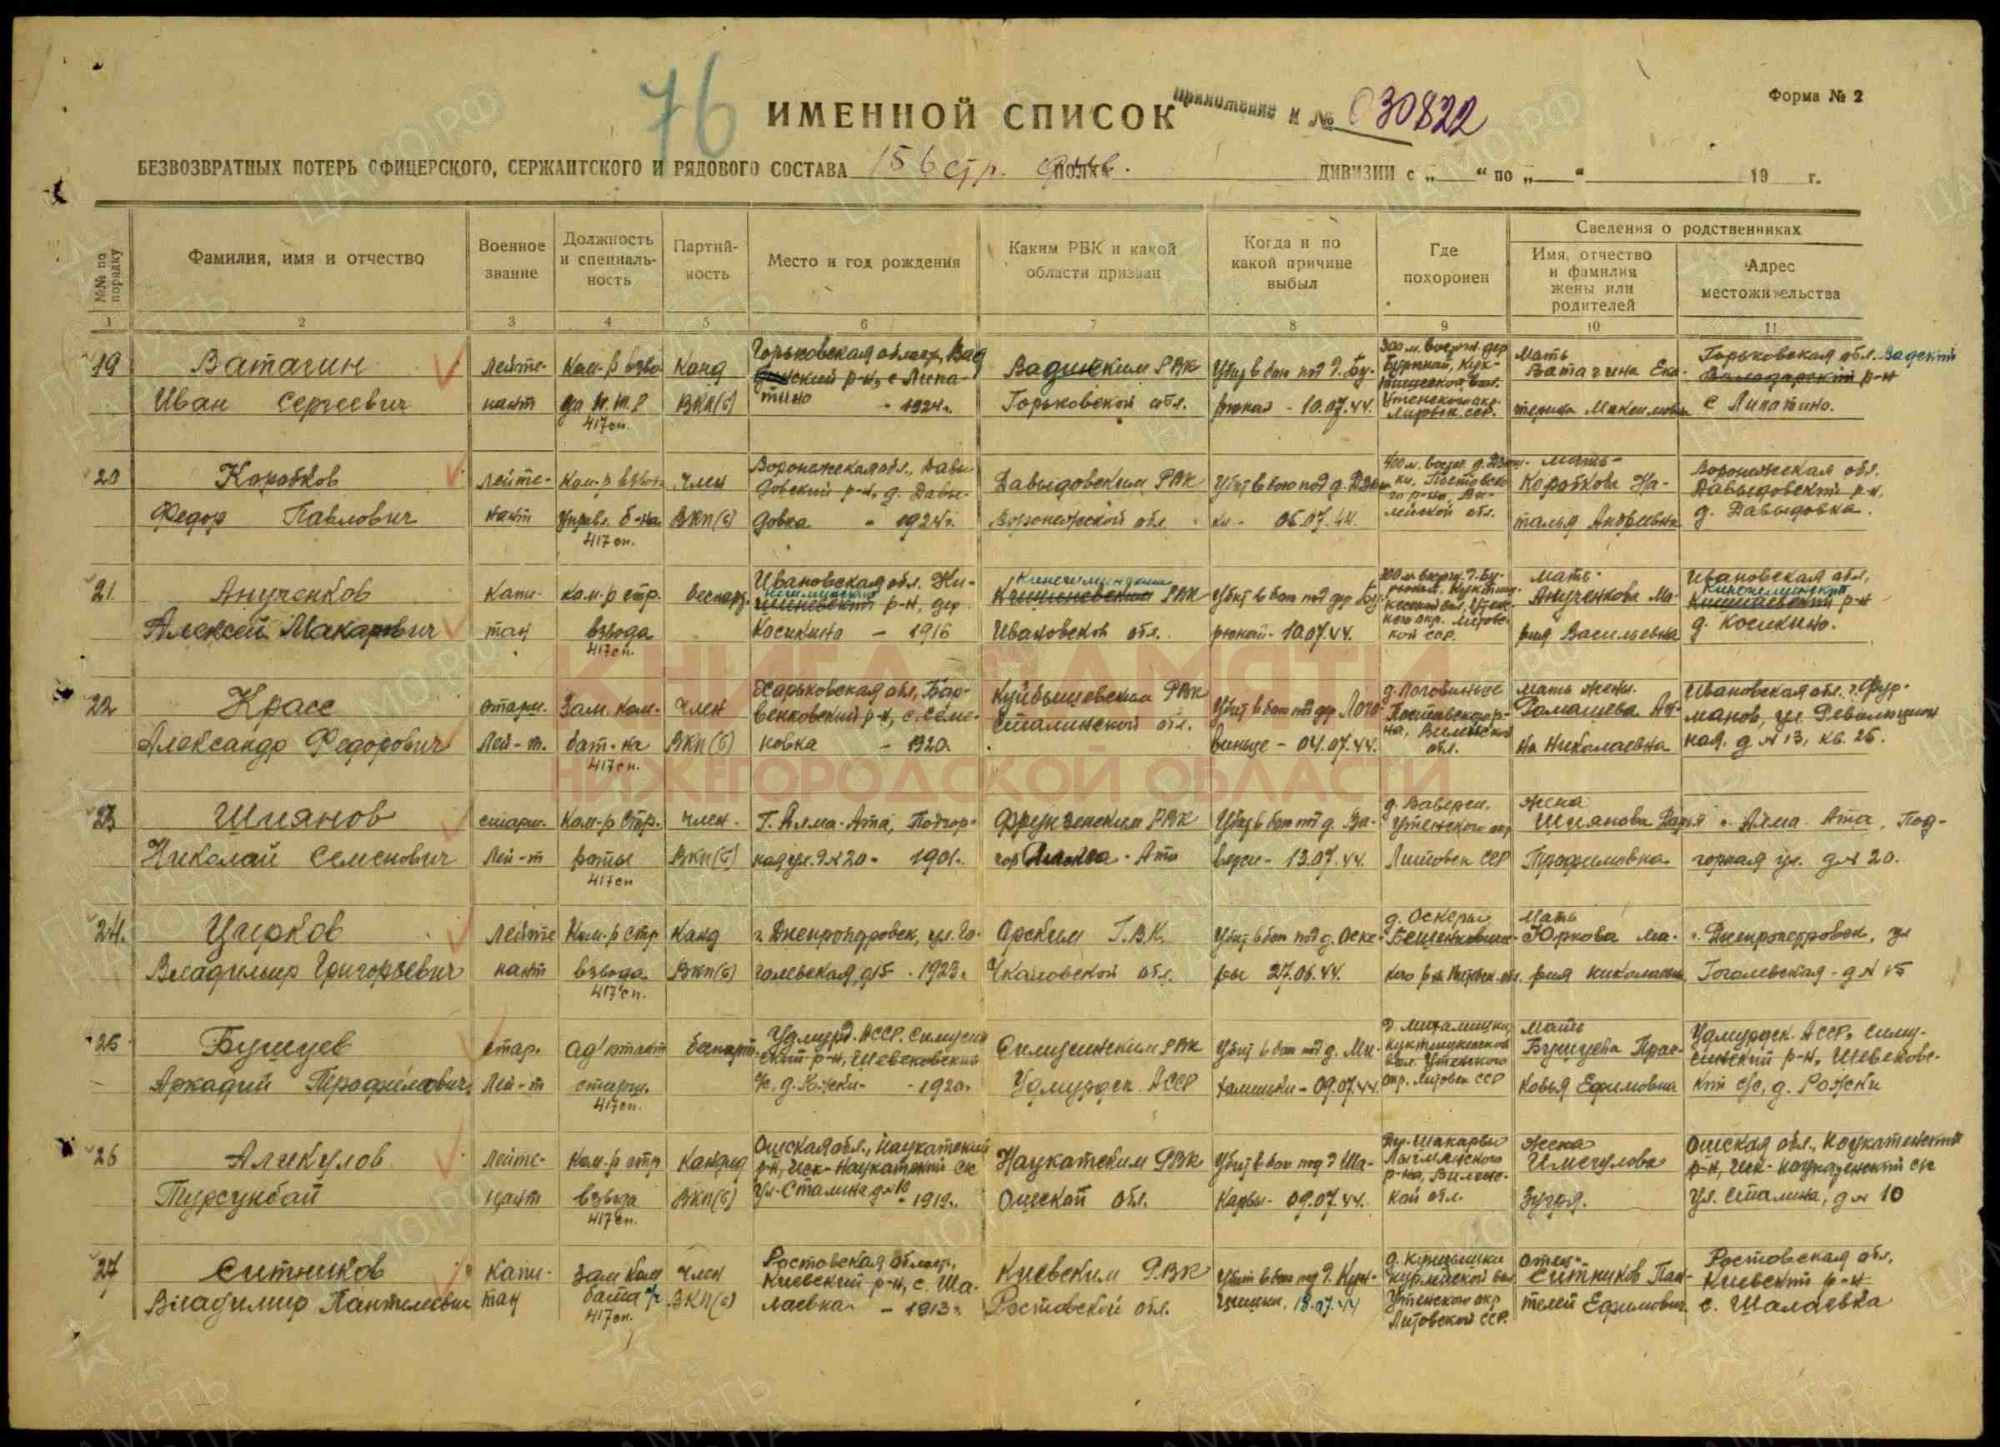 76
ИМЕННОЙ СПИСОК
приложение к № 030822
Форма № 2
БЕЗВОЗВРАТНЫХ ПОТЕРЬ ОФИЦЕРСКОГО, СЕРЖАНТСКОГО И РЯДОВОГО СОСТАВА 156 стр. полка див. ДИВИЗИИ с „ “ по „ “ 19 г.
№№ по порядку
Фамилия, имя и отчество
Военное звание
Должность и специальность
Партийность
Место и год рождения
Каким РВК и какой области призван
Когда и по какой причине выбыл
Где похоронен
Сведения о родственниках
Имя, отчество и фамилия жены или родителей
Адрес местожительства
1 2 3 4 5 6 7 8 9 10 11
19 Ватагин Иван Сергеевич
Лейтенант
Ком-р взвода 417 сп.
Канд ВКП(б)
Горьковская област, р-н, с Липатино - 1924 г.
Вадским РВК Горьковской обл.
Убит в бою под д. Бурюнай - 10.07.44.
300 м. восточ. дер Утенского окр. ССР.
Мать Ватагина Екатерина Максимовна
Горьковская обл. Вадский р-н с Липатино.
20 Коробков Федор Павлович
Лейтенант
Ком-р взвода управл. б-на 417 сп.
Член ВКП(б)
Воронежская обл., Давыдовский р-н, д. Давыдовка - 1924 г.
Давыдовским РВК Воронежской обл.
Убит в бою под д. 05.07.44.
400 м. Поставского р-на, Вилейской обл.
мать Коробкова Наталья Андреевна
Воронежская обл. Давыдовский р-н, д. Давыдовка.
21. Анученков Алексей Макарович
Капитан
ком-р стр. взвода 417 сп.
беспарт.
Ивановская обл. р-н, дер. Косикино - 1916
РВК Ивановской обл.
Убит в бою под дер Бурюнай - 10.07.44.
300 м. восточ. д. Бурюнай, ССР.
мать Анученкова Мария Васильевна
Ивановская обл, р-н д. Косикино.
22 Красс Александр Федорович
старш. Лей-т.
Зам. ком. бат-на 417 сп.
Член ВКП(б)
Харьковская обл, Барвенковский р-н, с. Семеновка - 1920.
Куйбышевским РВК Сталинской обл.
Убит в бою под дер Логовиньце - 04.07.44.
д. Логовиньце Поставского р-на, обл.
мать жены. Ромашева Николаевна
Ивановская обл. г. Фурманов, ул. Революционная. д № 13, кв. 25.
23 Шиянов Николай Семенович
старш. Лей-т
Ком-р стр. роты 417 сп
Член ВКП(б)
Г. Алма-Ата, Подгорная ул. 9 № 20 - 1901.
Фрунзенским РВК гор Алма-Ата
Убит в бою под д. Ваверси - 13.07.44.
д. Ваверси, Утенского окр Литовск ССР
жена Шиянова Дарья Трофимовна
г. Алма-Ата, Подгорная ул. д № 20.
24. Цирков Владимир Григорьевич
Лейтенант
Ком-р стр взвода 417 сп.
Канд ВКП(б)
г. Днепропдровск, ул. Гоголевская, д 15 - 1923 г.
Орским Г.В.К. Чкаловской обл.
Убит в бою под д. Оскеры 27.06.44.
д. Оскеры Бешенковичского р-на
Мать Юркова Мария Николаевна
г. Днепропетровск, ул Гоголевская - д № 15
25 Бушуев Аркадий Трофимович
стар. Лей-т
ад'ютант старш. 417 сп.
беспарт.
Удмурд. АССР. р-н, Шевековский с/с, д. Рожки - 1920 г.
РВК Удмурдск. АССР
Убит в бою под д. 09.07.44
Утенского окр. Литовск ССР
Мать Бушуева Прасковья Ефимовна
Удмурдск. АССР, р-н, с/с, д. Рожки
26 Аликулов Турсунбай
Лейтенант
Ком-р стр взвода 417 сп.
Кандид ВКП(б)
Ошская обл., Наукатский р-н, ул. Сталина д № 10 - 1919 г.
Наукатским РВК Ошской обл.
Убит в бою под д. Шакарвы - 09.07.44.
д. Шакарвы р-на, обл.
жена
Ошская обл., р-н, ул. Сталина, д № 10
27 Ситников Владимир Пантелеевич
Капитан
Зам ком бата п/ч 417 сп.
Член ВКП(б)
Ростовская област, Киевский р-н, с. Шалаевка - 1913 г.
Киевским РВК Ростовской обл.
Убит в бою под д. 18.07.44
Утенского окр Литовской ССР.
отец Ситников Пантелей Ефимович.
Ростовская обл, Киевский р-н с. Шалаевка
КНИГА ПАМЯТИ
НИЖЕГОРОДСКОЙ ОБЛАСТИ